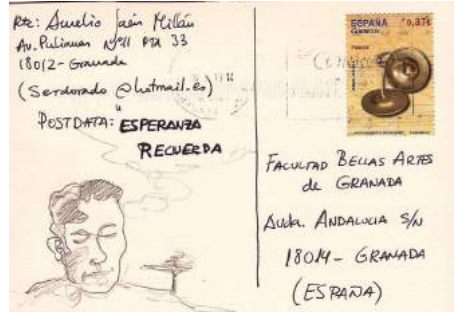 Rte: Aurelio Jaén Millán
Av. Pulianas Nº11 33
18012 - Granada
(Serdorado @hotmail.es)
POSTDATA: ESPERANZA
RECUERDA
ESPAÑA 0,37€
CORREOS
FACULTAD BELLAS ARTES
de GRANADA
Avda. ANDALUCIA S/N
18014 - GRANADA
(ESPAÑA)